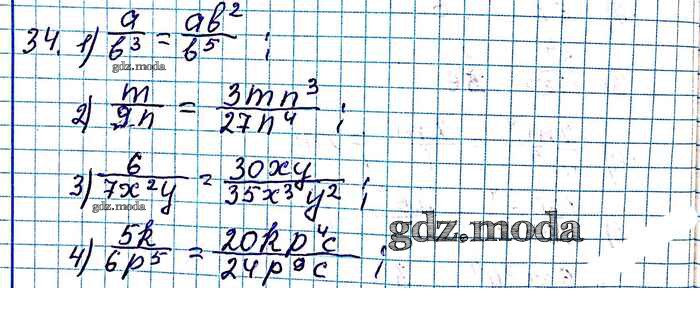 34. 1) a/b³ = ab²/b⁵ ;
gdz.moda
2) m/9n = 3mn³/27n⁴ ;
3) 6/7x²y = 30xy/35x³y² ;
gdz.moda
gdz.moda
4) 5k/6p⁵ = 20kp⁴c/24p⁹c ;